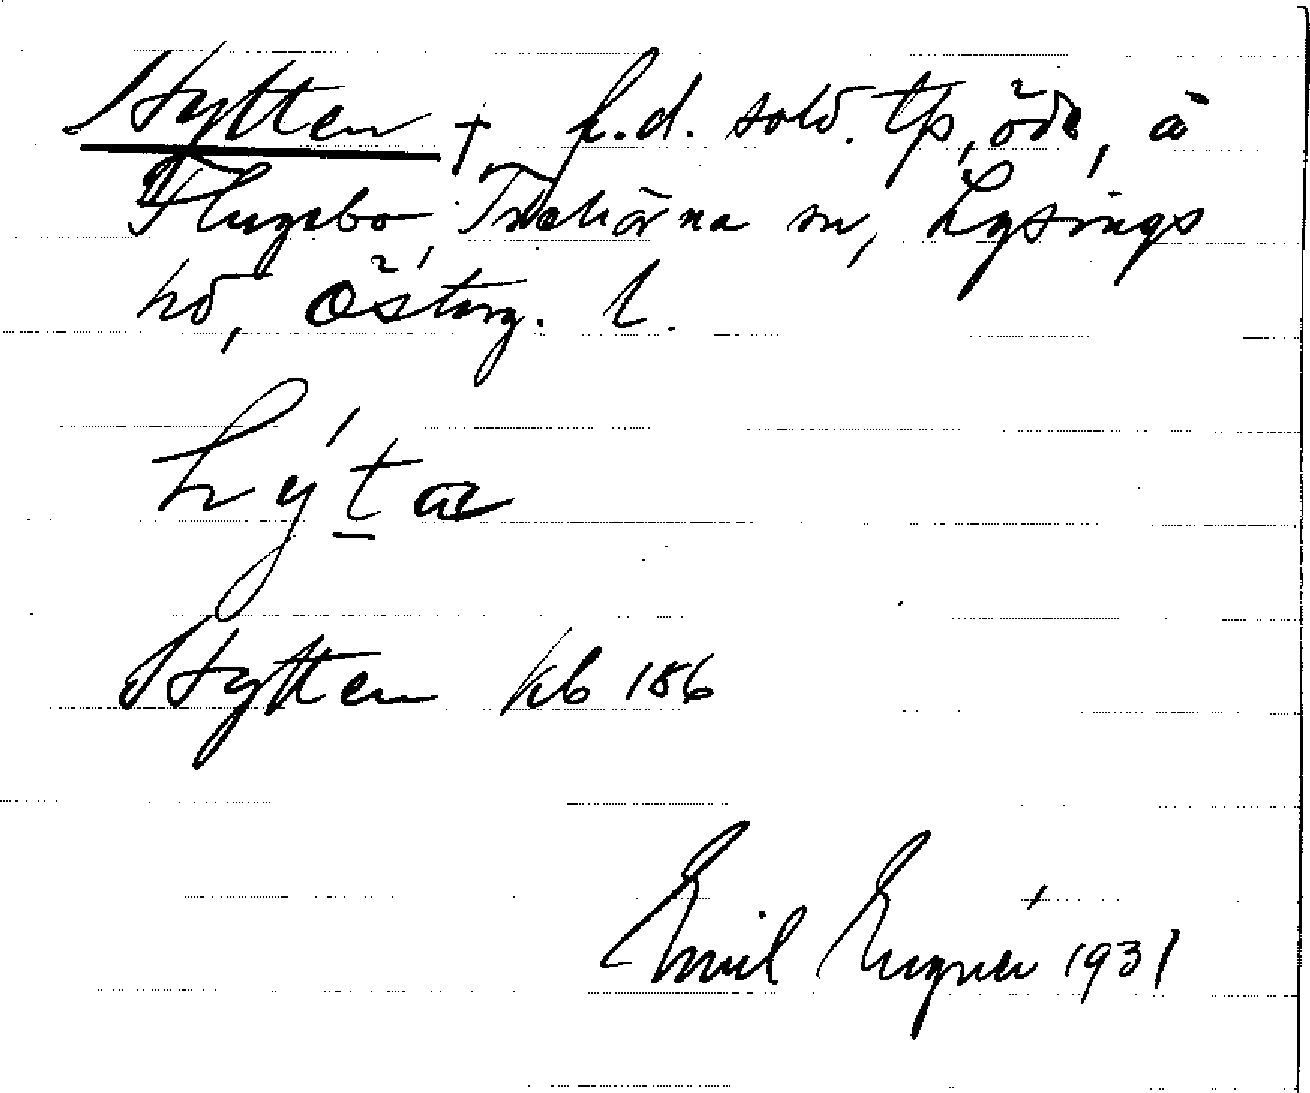 Hytten †, f.d. sold. tp, öde, å
Flugebo, Trehörna sn, Lysings
hd, Östergs. l.
hy´ta
Hytten kb 186
Emil Lugnér 1931